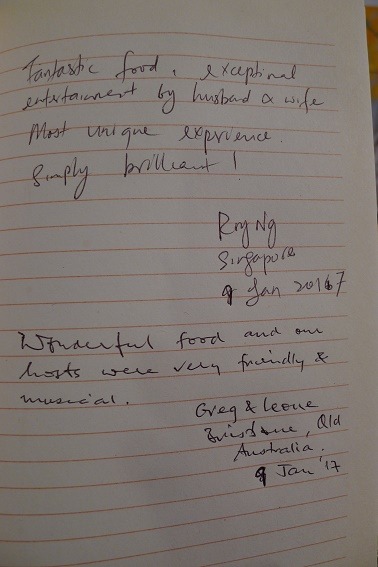 Fantastic food, exceptinal
entertainment by husbad & wife
Most unique exprience.
Simply brilliant!
Roy Ng
Singapore
9 Jan 2017
Wonderful food and our
hosts were very friendly &
musical.
Greg & Leone
Brisbane, Qld
Australia.
9 Jan '17